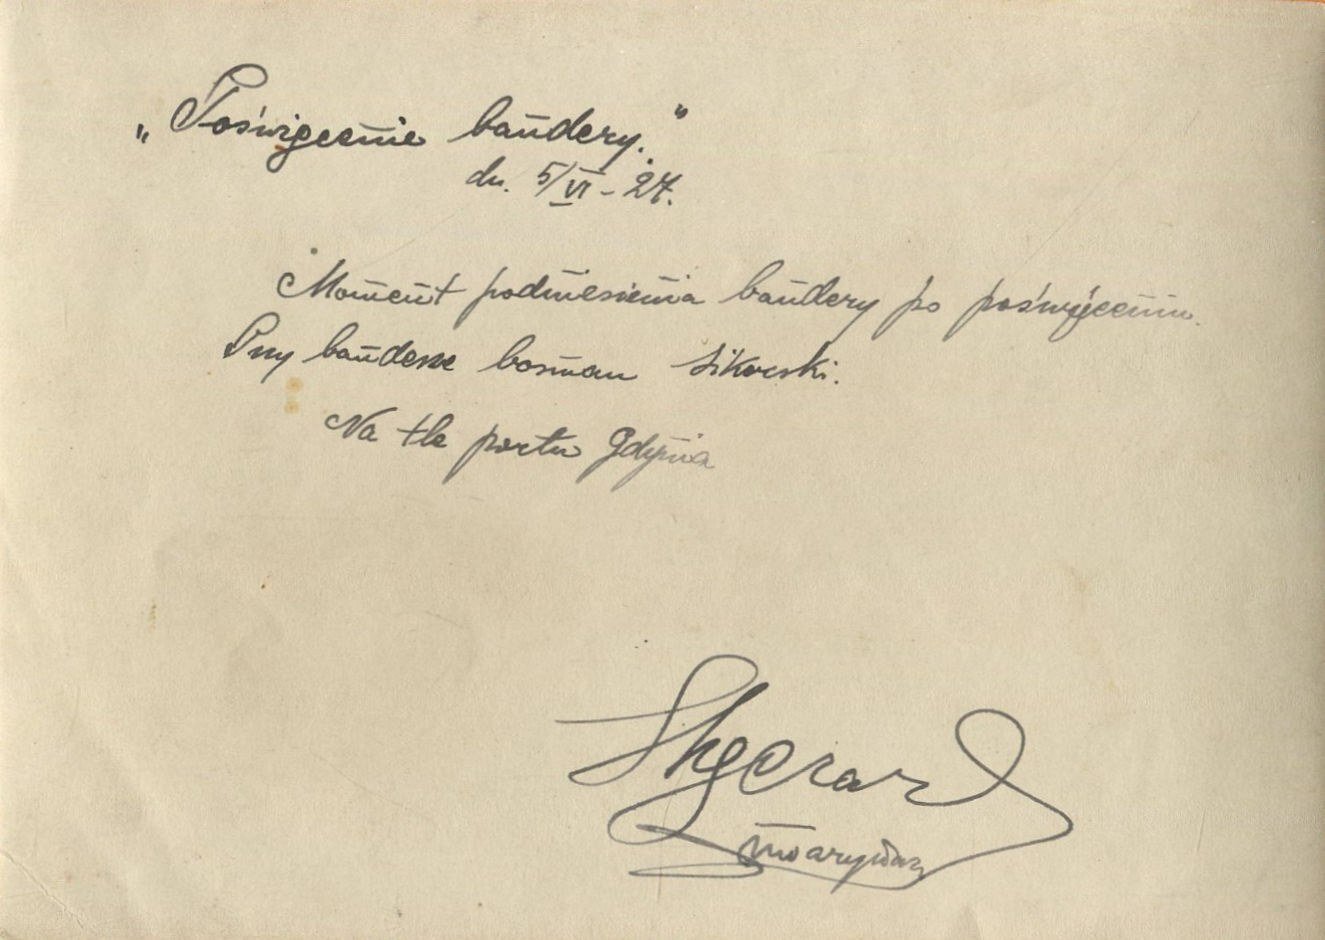 „Poświęcenie bandery.”
dn. 5/VI - 27.
Moment podniesienia bandery po poświęceniu.
Przy banderze bosman Sikorski.
Na tle portu Gdynia
marynarz